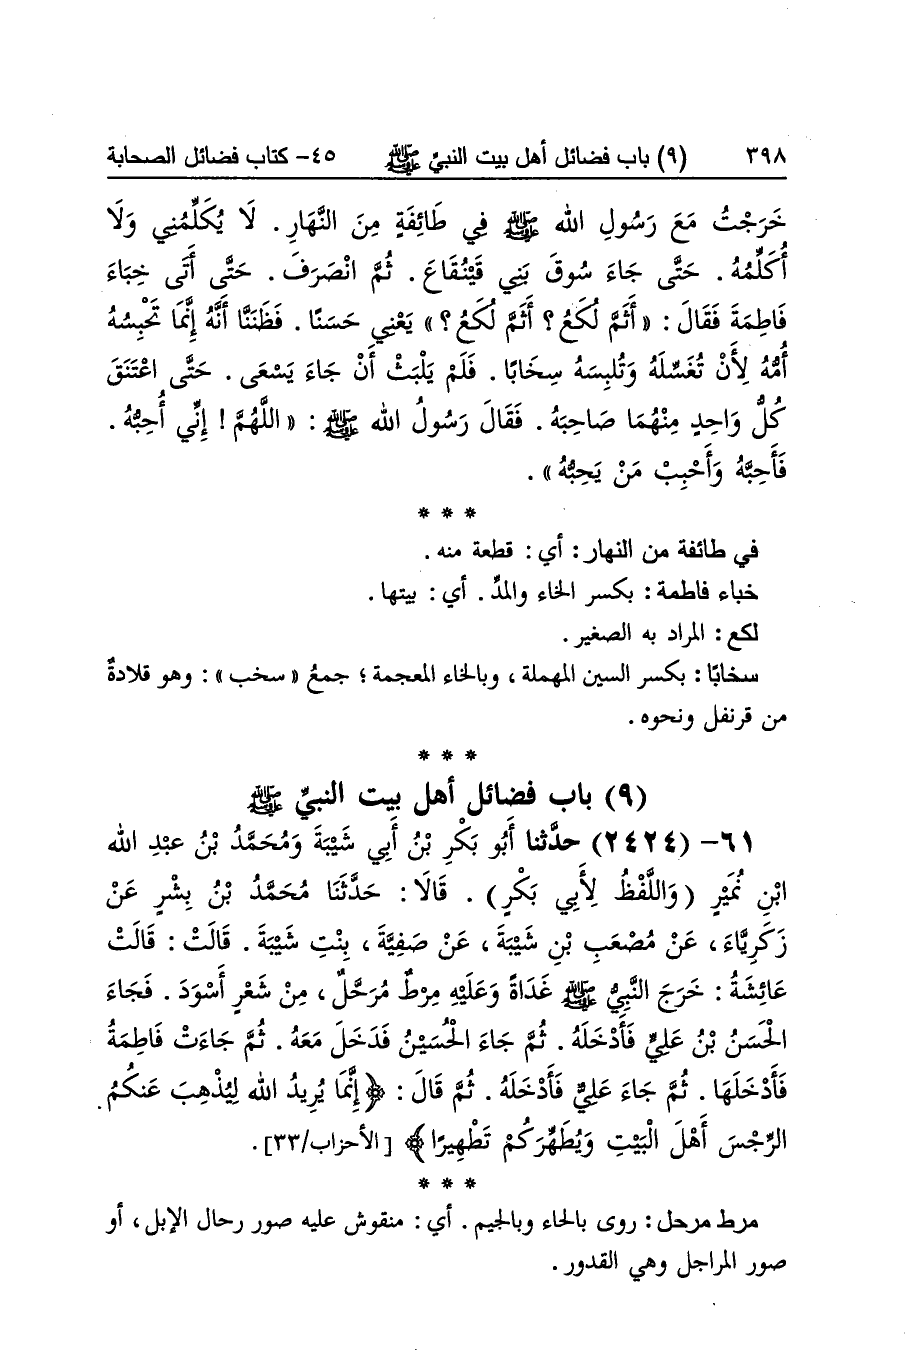 ٣٩٨ (٩) باب فضائل أهل بيت النبيِّ ﷺ ٤٥- كتاب فضائل الصحابة
خَرَجْتُ مَعَ رَسُولِ الله ﷺ فِي طَائِفَةٍ مِنَ النَّهَارِ . لَا يُكَلِّمُنِي وَلَا
أُكَلِّمُهُ . حَتَّى جَاءَ سُوقَ بَنِي قَيْنُقَاعَ . ثُمَّ انْصَرَفَ . حَتَّى أَتَى خِبَاءَ
فَاطِمَةَ فَقَالَ : « أَثَمَّ لُكَعُ ؟ أَثَمَّ لُكَعُ ؟ » يَعْنِي حَسَنًا . فَظَنَنَّا أَنَّهُ إِنَّمَا تَحْبِسُهُ
أُمُّهُ لِأَنْ تُغَسِّلَهُ وَتُلبِسَهُ سِخَابًا . فَلَمْ يَلْبَثْ أَنْ جَاءَ يَسْعَى . حَتَّى اعْتَنَقَ
كُلُّ وَاحِدٍ مِنْهُمَا صَاحِبَهُ . فَقَالَ رَسُولُ الله ﷺ : « اللَّهُمَّ ! إِنِّي أُحِبُّهُ .
فَأَحِبَّهُ وَأَحْبِبْ مَنْ يَحِبُّهُ » .
* * *
في طائفة من النهار : أي : قطعة منه .
خباء فاطمة : بكسر الخاء والمدِّ . أي : بيتها .
لكع : المراد به الصغير .
سخابًا : بكسر السين المهملة ، وبالخاء المعجمة ؛ جمعُ « سخب » : وهو قلادةٌ
من قرنفل ونحوه .
* * *
(٩) باب فضائل أهل بيت النبيِّ ﷺ
٦١- (٢٤٢٤) حدَّثنا أَبُو بَكْرِ بْنُ أَبِي شَيْبَةَ وَمُحَمَّدُ بْنُ عبْدِ الله
ابْنِ نُمَيْرٍ ( وَاللَّفْظُ لِأَبِي بَكْرٍ ) . قَالَا : حَدَّثَنَا مُحَمَّدُ بْنُ بِشْرٍ عَنْ
زَكَرِيَّاءَ ، عَنْ مُصْعَبِ بْنِ شَيْبَةَ ، عَنْ صَفِيَّةَ ، بِنْتِ شَيْبَةَ . قَالَتْ : قَالَتْ
عَائِشَةُ : خَرَجَ النَّبِيُّ ﷺ غَدَاةً وَعَلَيْهِ مِرْطٌ مُرَحَّلٌ ، مِنْ شَعْرٍ أَسْوَدَ . فَجَاءَ
الْحَسَنُ بْنُ عَلِيٍّ فَأَدْخَلَهُ . ثُمَّ جَاءَ الْحُسَيْنُ فَدَخَلَ مَعَهُ . ثُمَّ جَاءَتْ فَاطِمَةُ
فَأَدْخَلَهَا . ثُمَّ جَاءَ عَلِيٌّ فَأَدْخَلَهُ . ثُمَّ قَالَ : ﴿ إِنَّمَا يُرِيدُ الله لِيُذْهِبَ عَنكُمُ
الرِّجْسَ أَهْلَ الْبَيْتِ وَيُطَهِّرَكُمْ تَطْهِيرًا ﴾ [ الأحزاب/٣٣] .
* * *
مرط مرحل : روى بالحاء وبالجيم . أي : منقوش عليه صور رحال الإبل ، أو
صور المراجل وهي القدور .